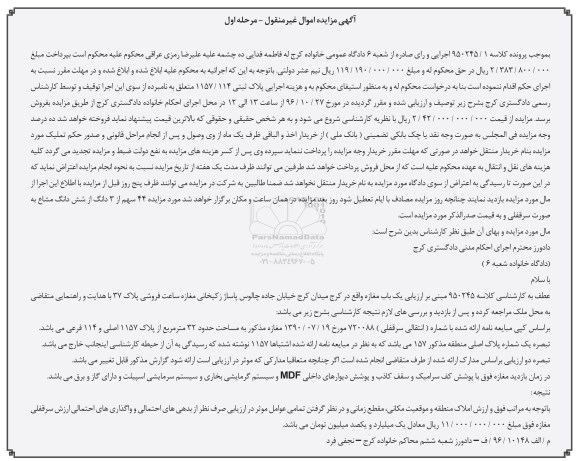 آگهی مزایده اموال غیرمنقول - مرحله اول
بموجب پرونده کلاسه 1 / 950245 اجرایی و رای صادره از شعبه 6 دادگاه عمومی خانواده کرج له فاطمه فدایی ده چشمه علیه علیرضا رمزی عراقی محکوم علیه محکوم است بپرداخت مبلغ
800 / 000 / 383 / 2 ریال در حق محکوم له و مبلغ 000 / 190 / 119 ریال نیم عشر دولتی. باتوجه به این که اجرائیه به محکوم علیه ابلاغ شده و ابلاغ شده و در مهلت مقرر نسبت به
اجرای حکم اقدام ننموده است بنا به درخواست محکوم له و به منظور استیفای محکوم به و هزینه اجرایی پلاک ثبتی 114 / 1157 متعلق به نامبرده از سوی این اجرا توقیف و توسط کارشناس
رسمی دادگستری کرج بشرح زیر توصیف و ارزیابی شده و مقرر گردیده در مورخ 27 / 10 / 96 از ساعت 13 الی 12 در محل اجرای احکام خانواده دادگستری کرج از طریق مزایده بفروش
برسد. مزایده از قیمت 000 / 000 / 420 / 2 ریال با نظریه کارشناسی شروع می شود و به هر شخص حقیقی و حقوقی که بالاترین قیمت پیشنهاد نماید فروخته خواهد شد ده درصد
وجه مزایده فی المجلس به صورت وجه نقد یا چک بانکی تضمینی ( بانک ملی ) از خریدار اخذ و الباقی ظرف یک ماه از وی وصول و پس از انجام مراحل قانونی و صدور حکم تملیک مورد
مزایده بنام خریدار منتقل خواهد در صورتی که مهلت مقرر خریدار وجه مزایده را پرداخت ننماید سپرده وی پس از کسر هزینه های مزایده به نفع دولت ضبط و مزایده تجدید می گردد کلیه
هزینه های نقل و انتقال به عهده محکوم علیه است که از محل فروش پرداخت خواهد شد طرفین می توانند ظرف مدت یک هفته از تاریخ مزایده نسبت به نحوه انجام مزایده اعتراض نماید که
در این صورت تا رسیدگی به اعتراض از سوی دادگاه مورد مزایده به نام خریدار منتقل نخواهد شد ضمنا طالبین به شرکت در مزایده می توانند ظرف پنج روز قبل از مزایده با اطلاع این اجرا از
مال مورد مزایده بازدید نمایند چنانچه روز مزایده مصادف با ایام تعطیل شود روز بعد مزایده در همان ساعت و مکان برگزار خواهد شد مورد مزایده 44 سهم از 3 دانگ از شش دانگ مشاع به
صورت سرقفلی و به قیمت صدرالذکر مورد مزایده است.
مال مورد مزایده و بهای آن طبق نظر کارشناس بدین شرح است:
دادورز محترم اجرای احکام مدنی دادگستری کرج
(دادگاه خانواده شعبه 6 )
با سلام
عطف به کارشناسی کلاسه 950245 مبنی بر ارزیابی یک باب مغازه واقع در کرج میدان کرج خیابان جاده چالوس پاساژ زکیخانی مغازه ساعت فروشی پلاک 37 با هدایت و راهنمایی متقاضی
به محل ملک مراجعه کرده و پس از بازدید و بررسی های لازم نتیجه کارشناسی بشرح زیر می باشد:
براساس کپی مبایعه نامه ارائه شده با شماره ( انتقالی سرقفلی ) 720088 مورخ 19 / 07 / 1390 مغازه مذکور به مساحت حدود 32 مترمربع از پلاک 1157 اصلی و 114 فرعی می باشد.
تبصره یک شماره پلاک اصلی منطقه مذکور 157 می باشد که به نظر در مبایعه نامه ارائه شده اشتباها 1157 نوشته شده که رسیدگی به آن از حیطه کارشناسی اینجانب خارج می باشد.
تبصره دو ارزیابی براساس مدارک ارائه شده از طرف متقاضی انجام شده است اگر چنانچه متعاقبا مدارکی که موثر در ارزیابی است ارائه شود گزارش مذکور قابل تغییر می باشد.
در زمان بازدید مغازه فوق با پوشش کف سرامیک و سقف کاذب و پوشش دیوارهای داخلی MDF و سیستم گرمایشی بخاری و سیستم سرمایشی اسپیلت و دارای گاز و برق می باشد.
نتیجه:
باتوجه به مراتب فوق و ارزش املاک منطقه و موقعیت مکانی، مقطع زمانی و در نظر گرفتن تمامی عوامل موثر در ارزیابی صرف نظر از بدهی های احتمالی و واگذاری های احتمالی ارزش سرقفلی
مغازه فوق مبلغ 000 / 000 / 000 / 11 ریال معادل یک میلیارد و یکصد میلیون تومان می باشد.
م / الف 10148 / 96 / ف - دادورز شعبه ششم محاکم خانواده کرج - نجفی فرد
ParsNamadData
021-88349670-5